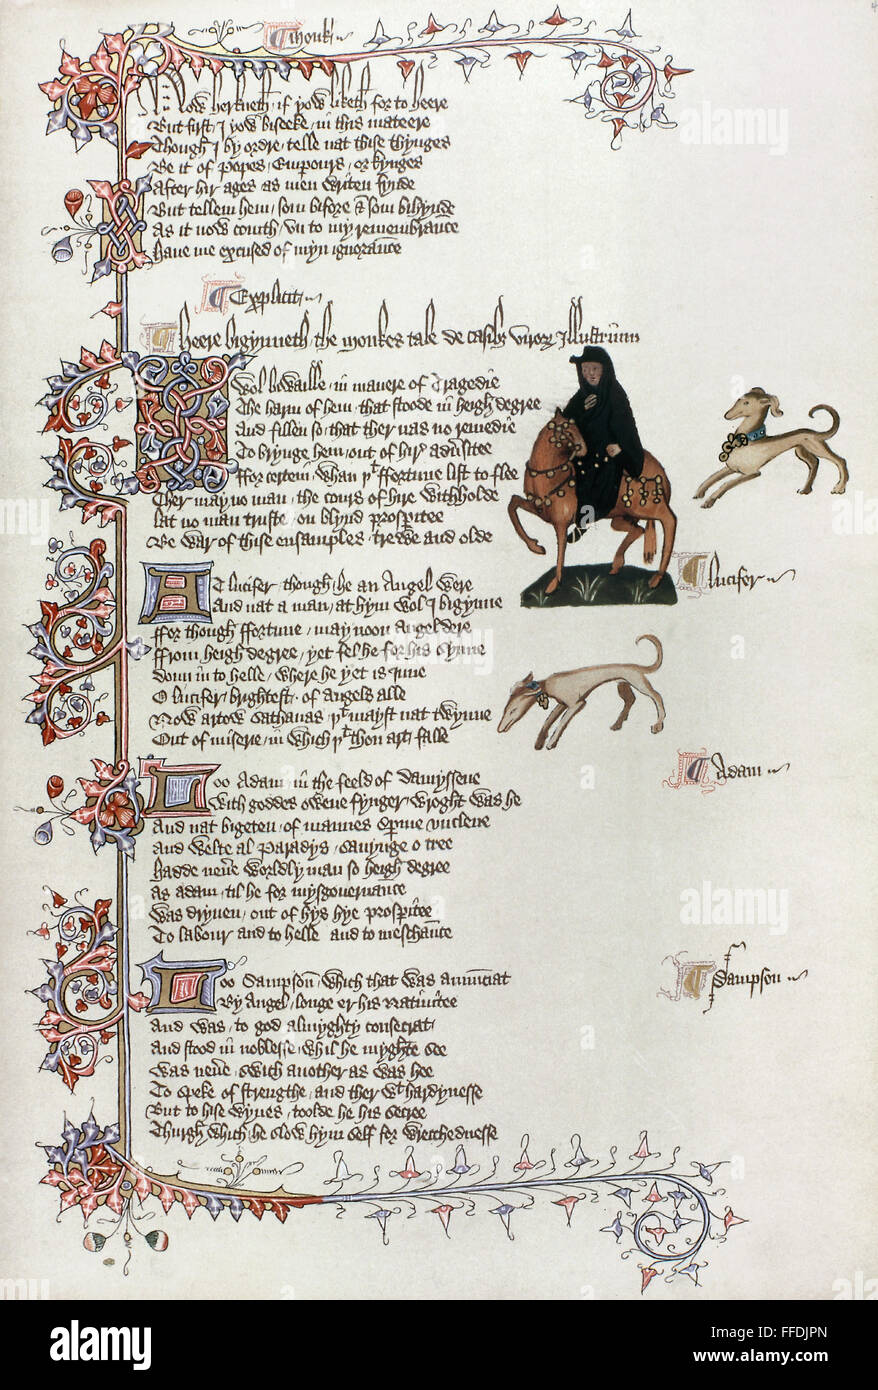 ¶ Monk
Now herkneth, if yow liketh for to heere
But first, I yow biseeke, in this mateere
Though I by ordre, telle nat thise thynges
Be it of Popes, Emperours, or kynges
After hir ages as men writen fynde
But tellem hem, som bifore & som bihynde
As it now comth, vn to my remembrance
Haue me excused of myn ignorance
¶ Explicit
¶ Heere bigynneth, the Monkes tale de Casibus virorum Illustrium
I Wol biwaille, in manere of Tragedie
The harm of hem, that stoode in heigh degree
And fillen so, that ther nas no remedie
To brynge hem, out of hir aduersitee
ffor certein, whan þt ffortune list to flee
Ther may no man, the cours of hire withholde
Lat no man truste, on blynd prosperitee
Be war of thise ensamples, trewe and olde
¶ Lucifer
AT lucifer, though, he an Angel were
And nat a man, at hym wol I bigynne
ffor though ffortune, may noon Angel dere
ffrom heigh degree, yet fel he for his synne
Doun in to helle, where he yet is Inne
O lucifer, brightest, of Angels alle
Now artow Sathanas, þt mayst nat twynne
Out of miserie, in which þt thou art, falle
¶ Adam
Loo Adam, in the feeld of Damyssene
With goddes owene fynger, wroght was he
And nat bigeten, of mannes sperme vnclene
And welte al Paradys, sauynge o tree
Hadde neuere worldly man so heigh degree
As Adam, til he for mysgouernance
Was dryuen, out of hys hye prosperitee
To labour and to helle and to meschance
¶ Sampson
Loo Sampson, which that was annunciat
By Angel, longe er his natiuitee
And was, to god almyghty consecrat
And stood in noblesse, whil he myghte see
Was neuere, swich another as was hee
To speke of strengthe, and ther wt hardynesse
But to hise wyues, toolde he his secree
Thurgh which, he slow hym self for wrecchednesse
alamy
Image ID: FFDJPN
www.alamy.com